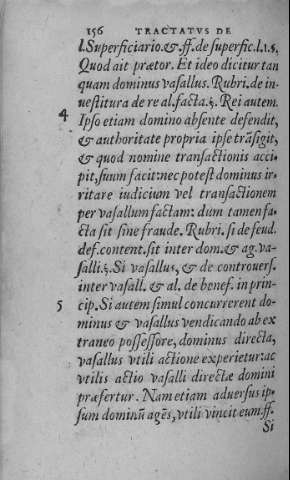 156 TRACTATVS DE
l. Superficiario. & ff. de superfic. l. 1. §.
Quod ait prætor. Et ideo dicitur tan
quam dominus vasallus. Rubri. de in-
uestitura de re al. facta. §. Rei autem.
4 Ipso etiam domino absente defendit,
& authoritate propria ipse trāsigit,
& quod nomine transactionis acci-
pit, suum facit: nec potest dominus ir-
ritare iudicium vel transactionem
per vasallum factam: dum tamen fa-
cta sit sine fraude. Rubri. si de feud.
def. content. sit inter dom. & ag. va-
salli. §. Si vasallus, & de controuers.
inter vasall. & al. de benef. in prin-
5 cip. Si autem simul concurrerent do-
minus & vasallus vendicando ab ex
traneo possessore, dominus directa,
vasallus vtili actione experietur: ac
vtilis actio vasalli directæ domini
præfertur. Nam etiam aduersus ip-
sum dominū agēs, vtili vincit eum. ff.
Si